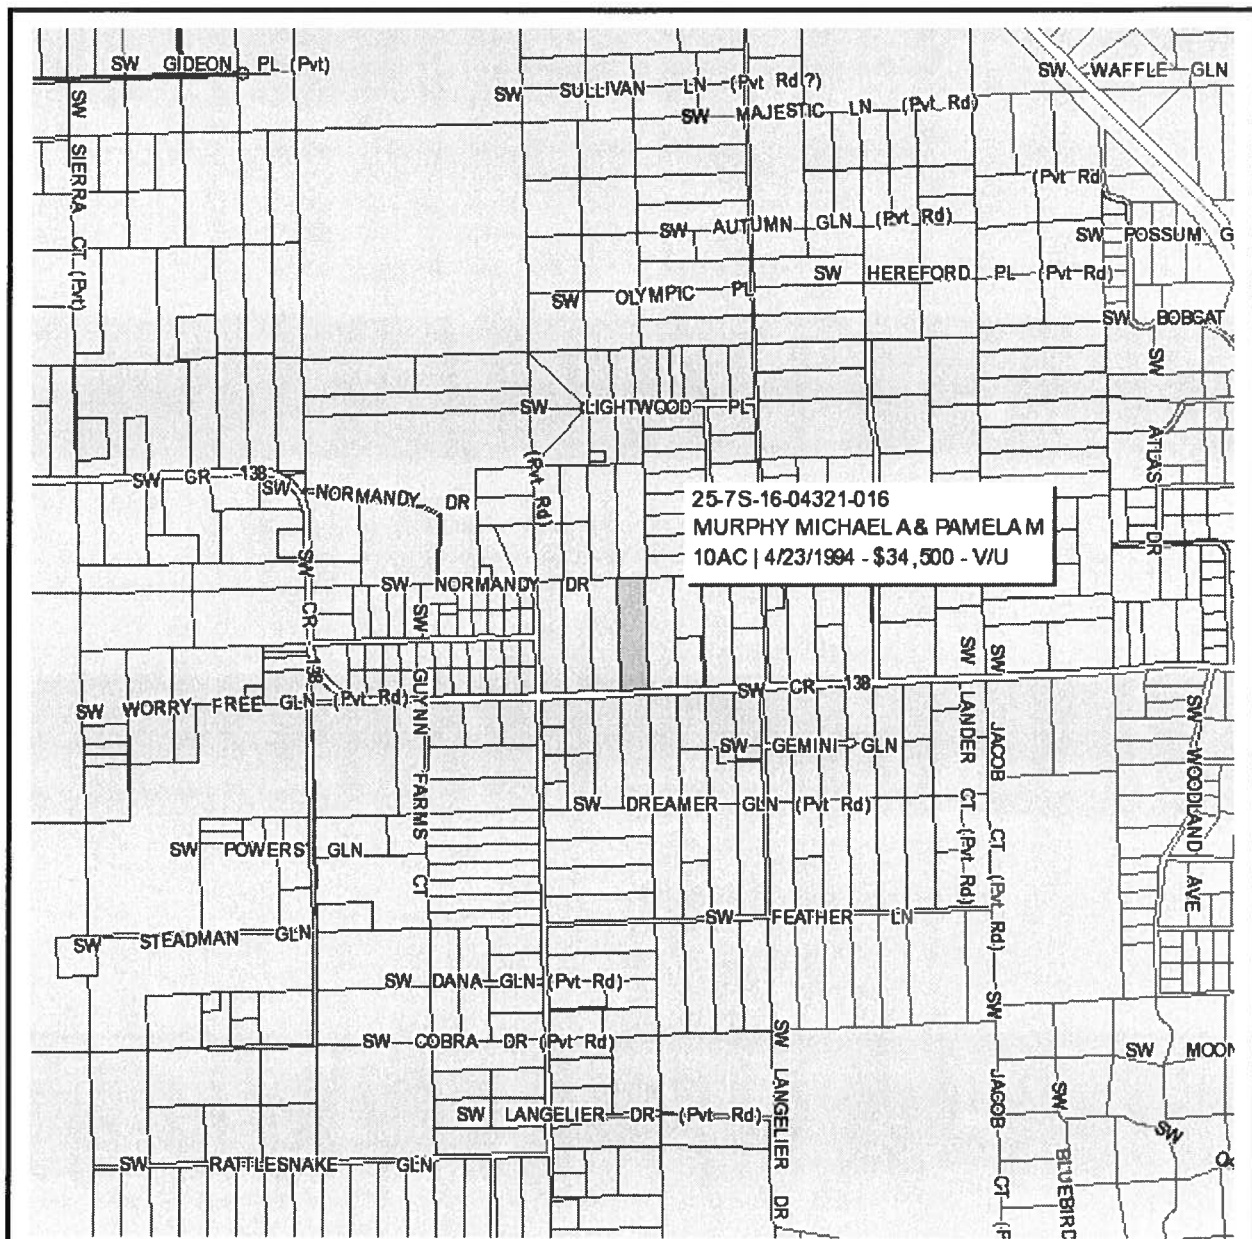 SW GIDEON PL (Pvt)
SW SULLIVAN LN (Pvt Rd ?)
SW WAFFLE GLN
SW MAJESTIC LN (Pvt Rd)
SW SIERRA CT (Pvt)
(Pvt Rd)
SW AUTUMN GLN (Pvt Rd)
SW POSSUM G
SW HEREFORD PL (Pvt Rd)
SW OLYMPIC PL
SW BOBCAT
SW ATLAS DR
SW LIGHTWOOD PL
(Pvt Rd)
SW CR 138
SW NORMANDY DR
25-7S-16-04321-016
MURPHY MICHAEL A & PAMELA M
10AC | 4/23/1994 - $34,500 - V/U
SW NORMANDY DR
SW CR 138
SW GUYNN FARMS CT
SW WORRY FREE GLN (Pvt Rd)
SW CR 138
SW LANDER CT (Pvt Rd)
SW JACOB CT (Pvt Rd)
SW WOODLAND AVE
SW GEMINI GLN
SW DREAMER GLN (Pvt Rd)
SW POWERS GLN
SW FEATHER LN
SW STEADMAN GLN
SW DANA GLN (Pvt Rd)
SW COBRA DR (Pvt Rd)
SW LANGELIER DR
SW JACOB CT (P
SW MOON
SW BLUEBIRD
SW
SW LANGELIER DR (Pvt Rd)
SW RATTLESNAKE GLN